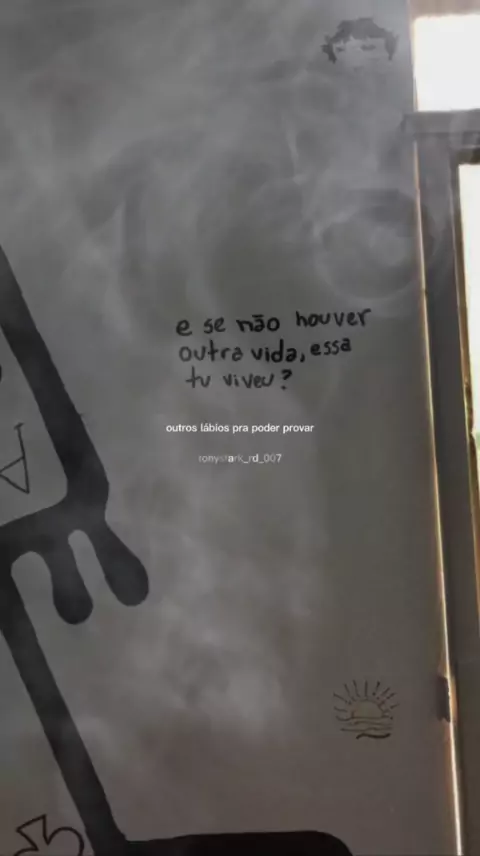 e se não houver
outra vida, essa
tu viveu?
outros lábios pra poder provar
ronystark_rd_007